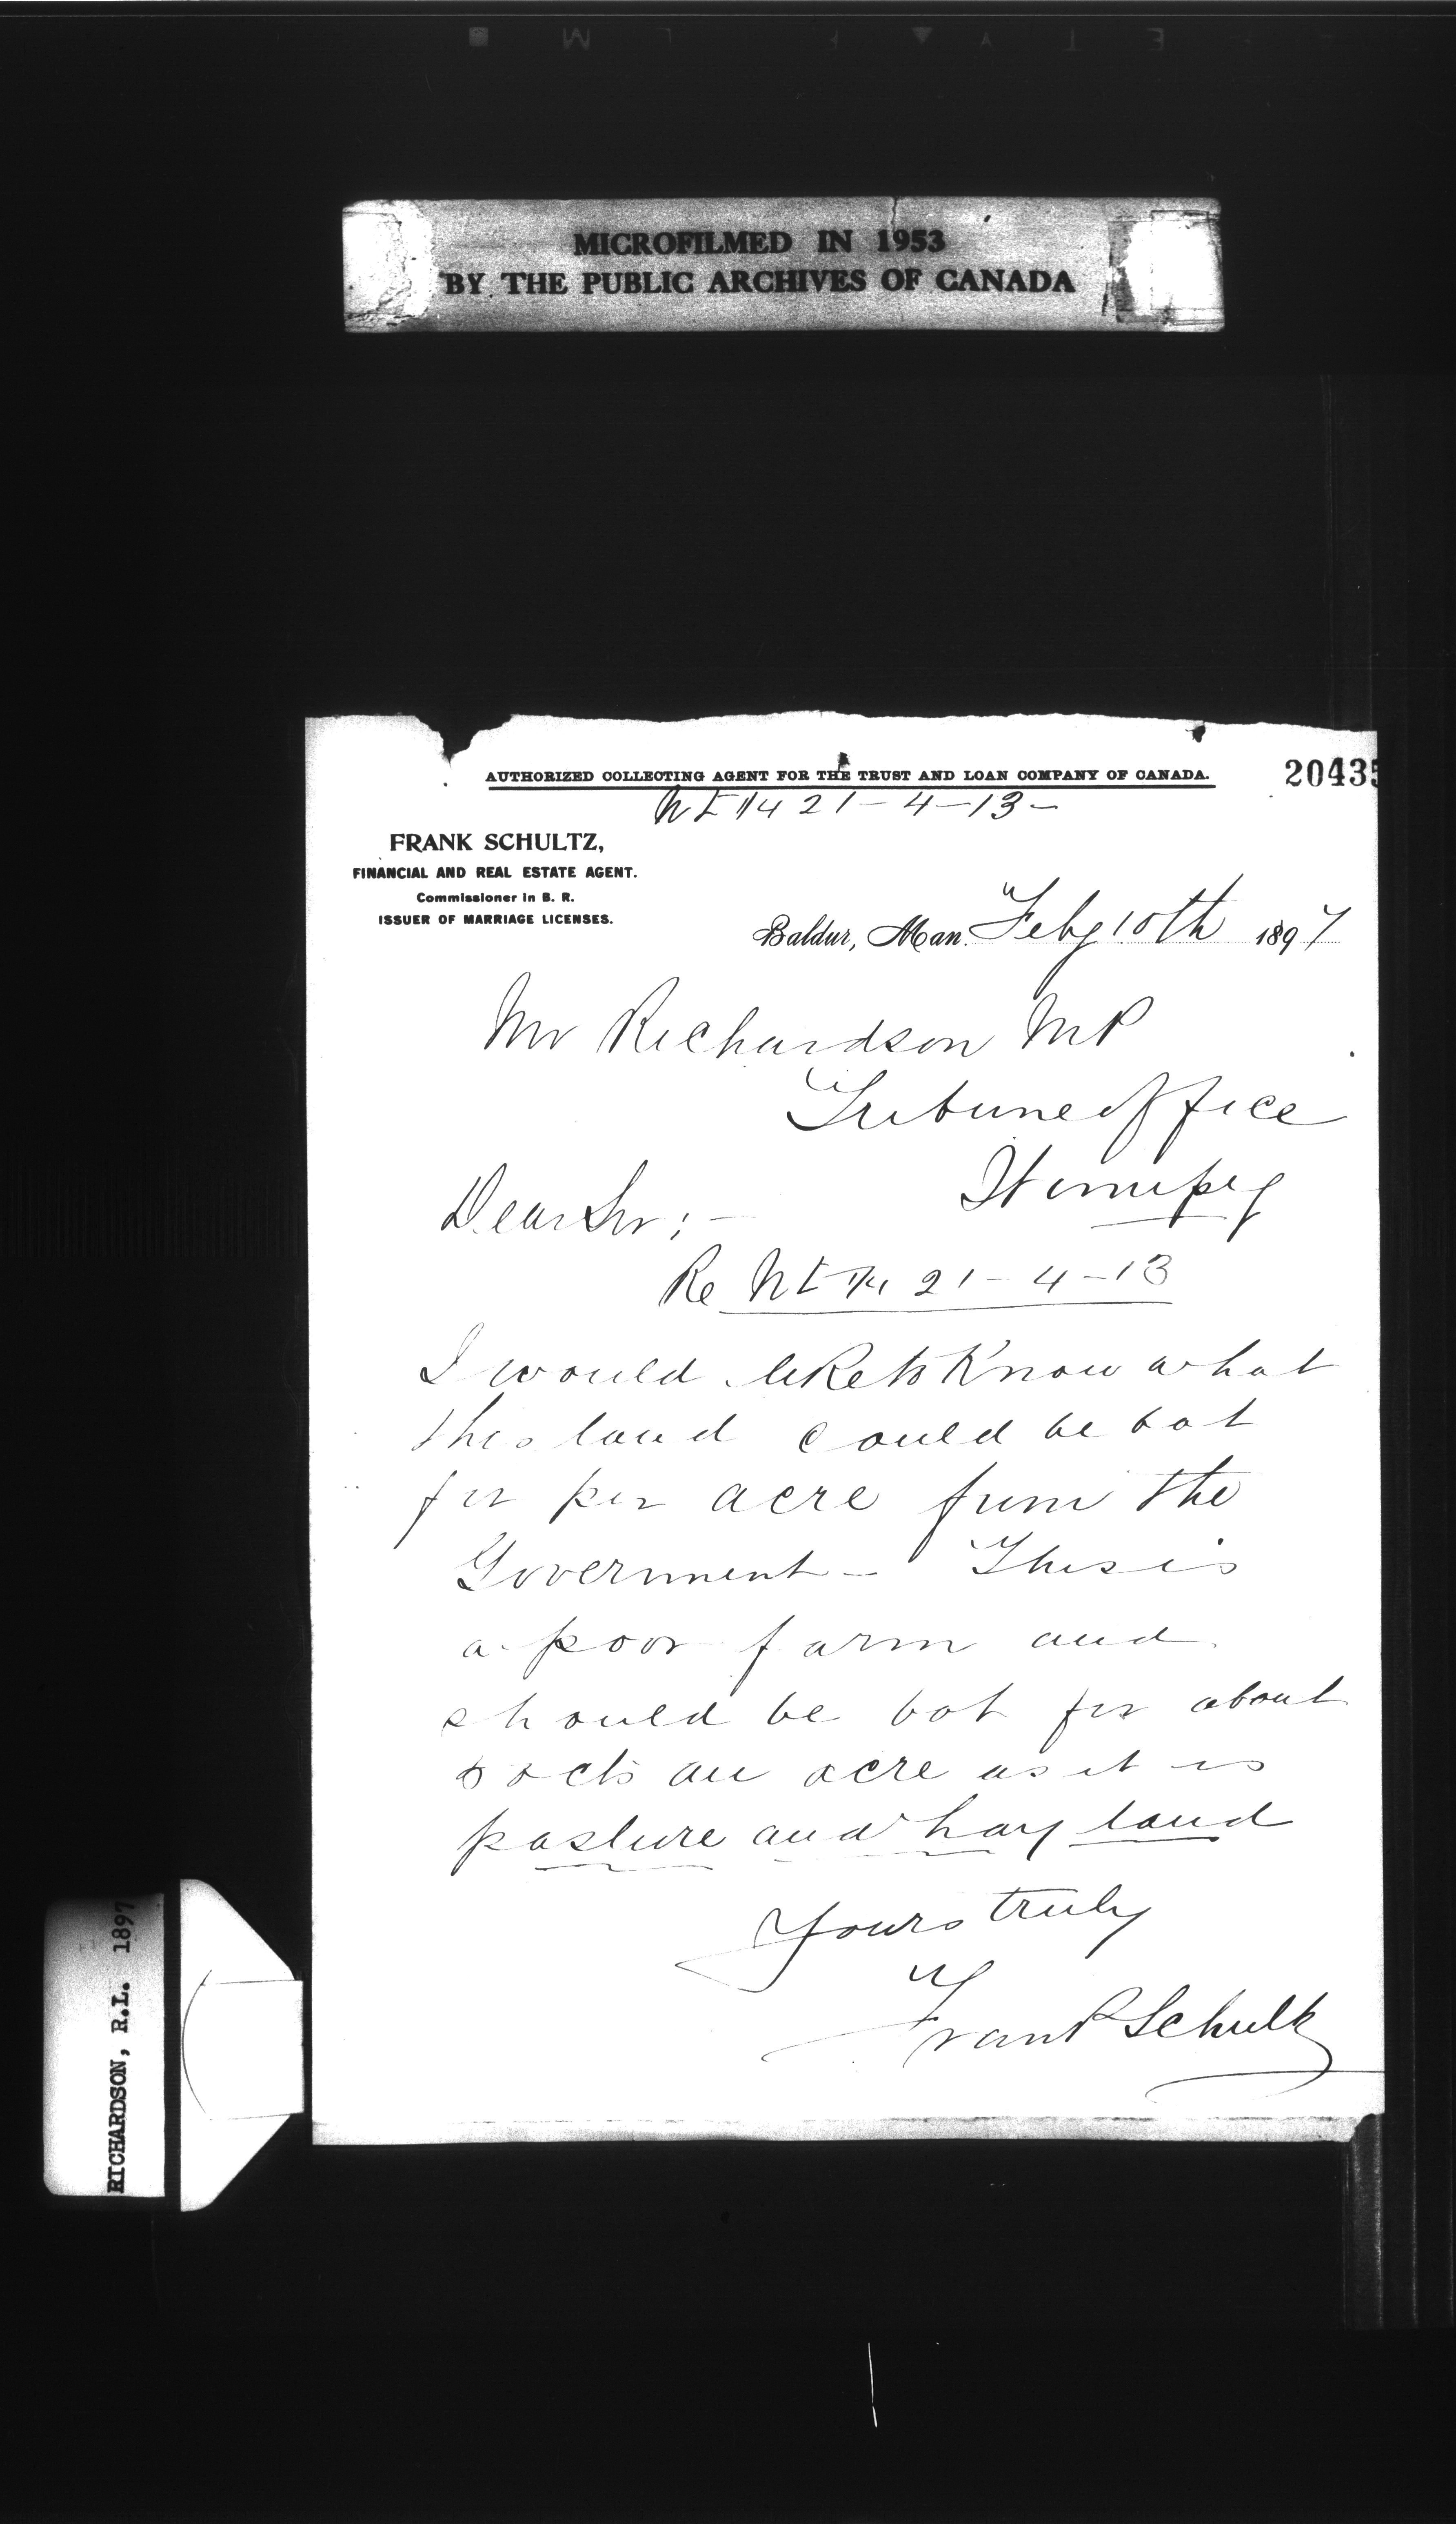 MICROFILMED IN 1953
BY THE PUBLIC ARCHIVES OF CANADA
AUTHORIZED COLLECTING AGENT FOR THE TRUST AND LOAN COMPANY OF CANADA.
20435
NE 1/4 21-4-13-
FRANK SCHULTZ,
FINANCIAL AND REAL ESTATE AGENT.
Commissioner in B. R.
ISSUER OF MARRIAGE LICENSES.
Baldur, Man. Feby 10th 1897
Mr Richardson MP
Tribune office
Winnipeg
Dear Sir;-
Re NE 1/4 21-4-13
I would like to Know what
this land could be bot
for per acre from the
Government - This is
a poor farm and
should be bot for about
cts an acre as it is
pasture and hay land
Yours truly
Frank Schultz
RICHARDSON, R.L. 1897